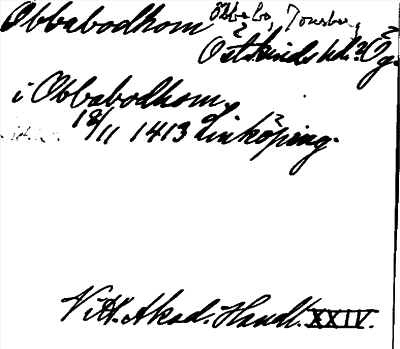 Obbabodhom Obbebo, Tonsberg
Östkinds hd. Ög.
i Obbabodhom
18/11 1413 Linköping.
Vitt. Akad. Handl. XXIV.